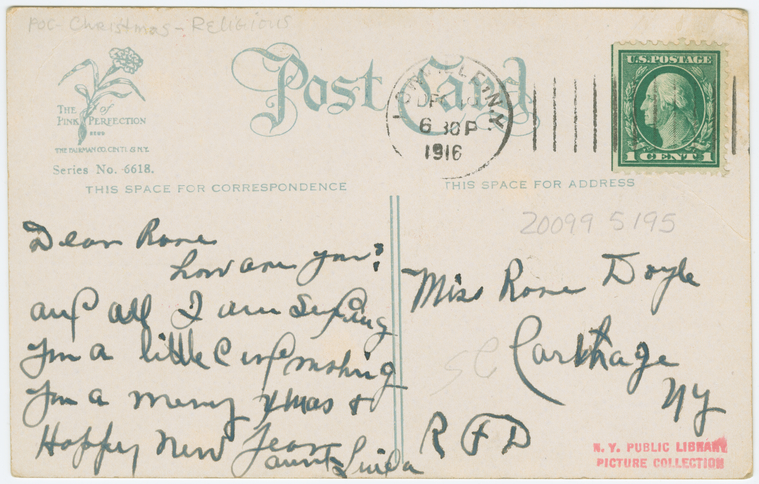 POC - Christmas - Religious
Post Card
THE of
PINK PERFECTION
Series No. 6618.
THIS SPACE FOR CORRESPONDENCE
THIS SPACE FOR ADDRESS
LOWVILLE, N.Y.
DEC
6 30P
1916
U.S. POSTAGE
1 CENT 1
20099 5195
Dear Rose
how are you?
and all I am sending
you a little card wishing
you a merry Xmas &
Happy New Year
aunt Linda
Miss Rose Doyle
Carthage
NY
R F D
N. Y. PUBLIC LIBRARY
PICTURE COLLECTION